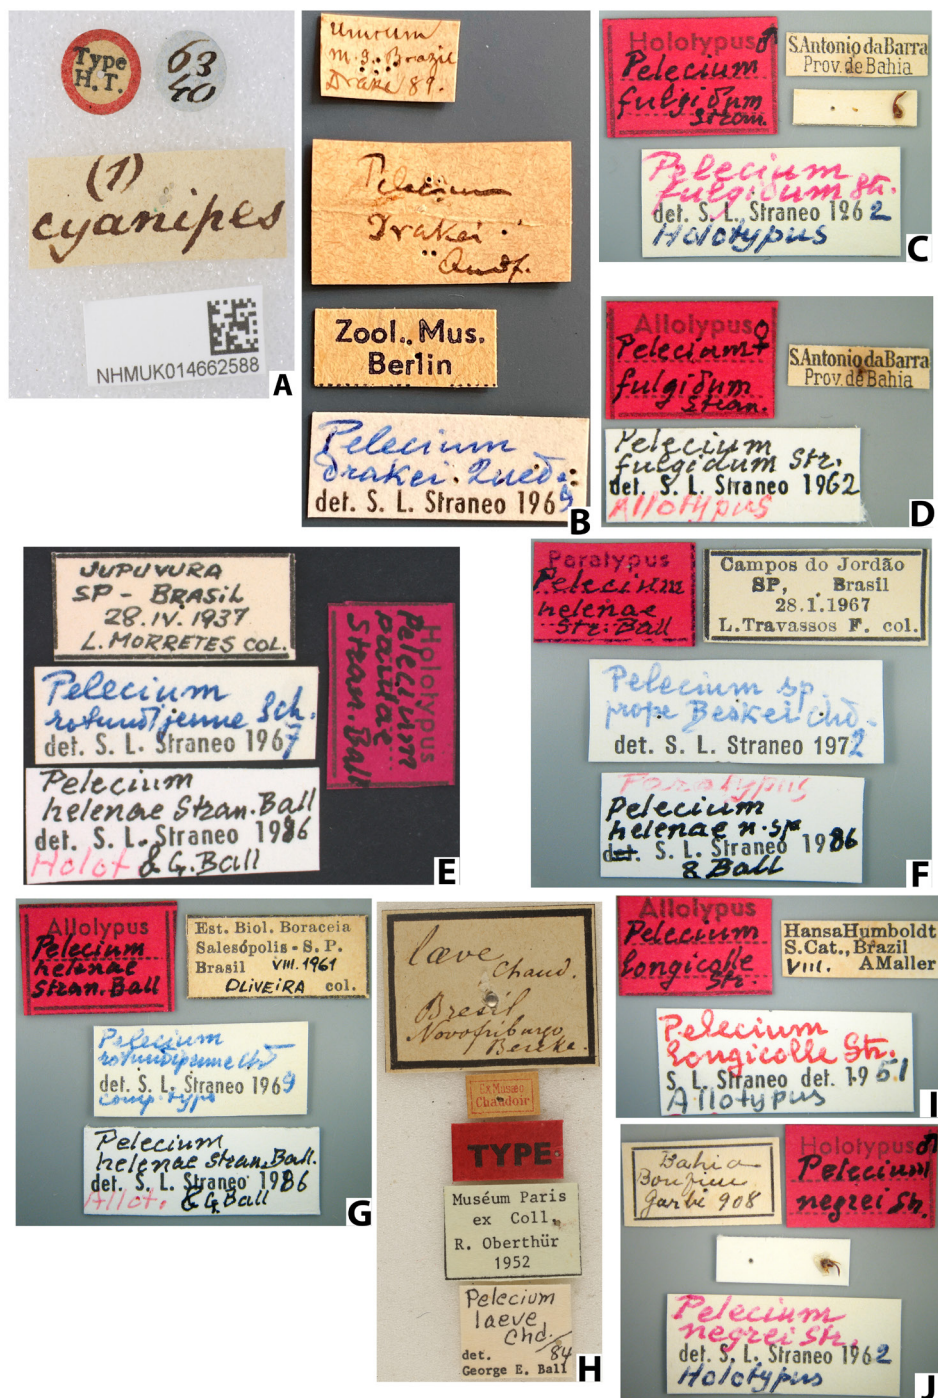 Type
H.T.
63
40
(1)
cyanipes
NHMUK014662588
A
Urucum
m.g. Brazil
Drake 89.
Pelecium
Drakei
Quedf.
Zool. Mus.
Berlin
Pelecium
drakei Qued.
det. S. L. Straneo 1969
B
Holotypus ♂
Pelecium
fulgidum
Stran.
S.Antonio da Barra
Prov. de Bahia
Pelecium
fulgidum Str.
det. S. L. Straneo 1962
Holotypus
C
Allotypus ♀
Pelecium
fulgidum
Stran.
S.Antonio da Barra
Prov. de Bahia
Pelecium
fulgidum Str.
det. S. L. Straneo 1962
Allotypus
D
JUPUVURA
SP - BRASIL
28.IV.1937
L. MORRETES COL.
Pelecium
rotundipenne Sch.
det. S. L. Straneo 1967
Pelecium
helenae Stran. Ball
det. S. L. Straneo 1986
Holot & G. Ball
Holotypus
Pelecium
Stran. Ball
E
Paratypus
Pelecium
helenae
Str. Ball
Campos do Jordão
SP, Brasil
28.1.1967
L.Travassos F. col.
Pelecium sp.
prope Beskei Chd.
det. S. L. Straneo 1972
Paratypus
Pelecium
helenae n.sp
det. S. L. Straneo 1986
& Ball
F
Allotypus
Pelecium
helenae
Stran. Ball
Est. Biol. Boraceia
Salesópolis - S. P.
Brasil VIII.1961
OLIVEIRA col.
Pelecium
rotundipenne Chd
det. S. L. Straneo 1969
comp. typo
Pelecium
helenae Stran. Ball.
det. S. L. Straneo 1986
Allot. & G. Ball
G
læve
Chaud.
Bresil
Novofriburgo
Bescke.
Ex Musæo
Chaudoir
TYPE
Muséum Paris
ex Coll.
R. Oberthür
1952
Pelecium
laeve
Chd.
det. /84
George E. Ball
H
Allotypus
Pelecium
longicolle
Str.
HansaHumboldt
S.Cat., Brazil
VIII. AMaller
Pelecium
longicolle Str.
S. L. Straneo det. 1951
Allotypus
I
Bahia
Bonfim
Garbe 908
Holotypus ♂
Pelecium
negrei Str.
Pelecium
negrei Str.
det. S. L. Straneo 1962
Holotypus
J